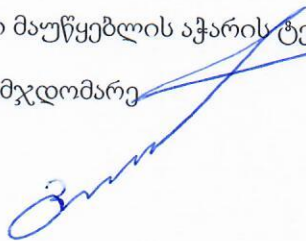 მაუწყებლის აჭარის
მჯდომარე